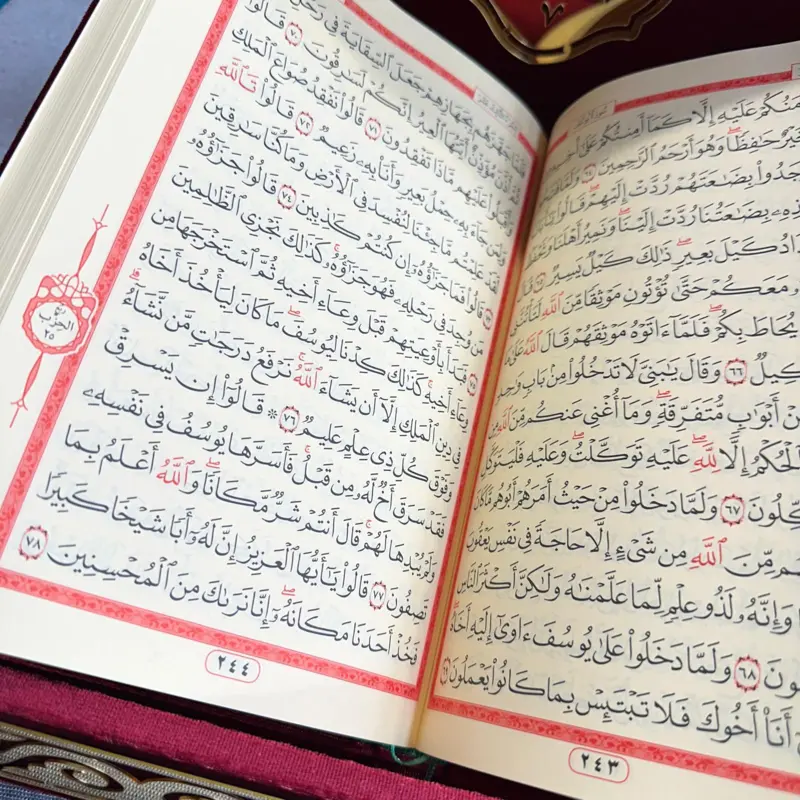 سورة يوسف
ءَامَنُكُمْ عَلَيْهِ إِلَّا كَمَآ أَمِنتُكُمْ عَلَىٰٓ أَخِيهِ
خَيْرٌ حَٰفِظًا ۖ وَهُوَ أَرْحَمُ ٱلرَّٰحِمِينَ ٦٤ وَلَمَّا فَتَحُوا۟
وَجَدُوا۟ بِضَٰعَتَهُمْ رُدَّتْ إِلَيْهِمْ ۖ قَالُوا۟ يَٰٓأَبَانَا
هَٰذِهِۦ بِضَٰعَتُنَا رُدَّتْ إِلَيْنَا ۖ وَنَمِيرُ أَهْلَنَا وَنَحْفَظُ
وَنَزْدَادُ كَيْلَ بَعِيرٍ ۖ ذَٰلِكَ كَيْلٌ يَسِيرٌ ٦٥ قَالَ
مَعَكُمْ حَتَّىٰ تُؤْتُونِ مَوْثِقًا مِّنَ ٱللَّهِ لَتَأْتُنَّنِى
يُحَاطَ بِكُمْ ۖ فَلَمَّآ ءَاتَوْهُ مَوْثِقَهُمْ قَالَ ٱللَّهُ عَلَىٰ مَا
وَكِيلٌ ٦٦ وَقَالَ يَٰبَنِىَّ لَا تَدْخُلُوا۟ مِنۢ بَابٍ وَٰحِدٍ
مِنْ أَبْوَٰبٍ مُّتَفَرِّقَةٍ ۖ وَمَآ أُغْنِى عَنكُم مِّنَ ٱللَّهِ
ٱلْحُكْمُ إِلَّا لِلَّهِ ۖ عَلَيْهِ تَوَكَّلْتُ ۖ وَعَلَيْهِ فَلْيَتَوَكَّلِ
ٱلْمُتَوَكِّلُونَ ٦٧ وَلَمَّا دَخَلُوا۟ مِنْ حَيْثُ أَمَرَهُمْ أَبُوهُم مَّا كَانَ
عَنْهُم مِّنَ ٱللَّهِ مِن شَىْءٍ إِلَّا حَاجَةً فِى نَفْسِ يَعْقُوبَ
وَإِنَّهُۥ لَذُو عِلْمٍ لِّمَا عَلَّمْنَٰهُ وَلَٰكِنَّ أَكْثَرَ ٱلنَّاسِ
يَعْلَمُونَ ٦٨ وَلَمَّا دَخَلُوا۟ عَلَىٰ يُوسُفَ ءَاوَىٰٓ إِلَيْهِ أَخَاهُ ۖ
أَنَا۠ أَخُوكَ فَلَا تَبْتَئِسْ بِمَا كَانُوا۟ يَعْمَلُونَ ٦٩
٢٤٣
فَلَمَّا جَهَّزَهُم بِجَهَازِهِمْ جَعَلَ ٱلسِّقَايَةَ فِى رَحْلِ
ثُمَّ أَذَّنَ مُؤَذِّنٌ أَيَّتُهَا ٱلْعِيرُ إِنَّكُمْ لَسَٰرِقُونَ ٧٠ قَالُوا۟
وَأَقْبَلُوا۟ عَلَيْهِم مَّاذَا تَفْقِدُونَ ٧١ قَالُوا۟ نَفْقِدُ صُوَاعَ ٱلْمَلِكِ
وَلِمَن جَآءَ بِهِۦ حِمْلُ بَعِيرٍ وَأَنَا۠ بِهِۦ زَعِيمٌ ٧٢ قَالُوا۟ تَٱللَّهِ
لَقَدْ عَلِمْتُم مَّا جِئْنَا لِنُفْسِدَ فِى ٱلْأَرْضِ وَمَا كُنَّا سَٰرِقِينَ
٧٣ قَالُوا۟ فَمَا جَزَٰٓؤُهُۥٓ إِن كُنتُمْ كَٰذِبِينَ ٧٤ قَالُوا۟ جَزَٰٓؤُهُۥ
مَن وُجِدَ فِى رَحْلِهِۦ فَهُوَ جَزَٰٓؤُهُۥ ۚ كَذَٰلِكَ نَجْزِى ٱلظَّٰلِمِينَ
٧٥ فَبَدَأَ بِأَوْعِيَتِهِمْ قَبْلَ وِعَآءِ أَخِيهِ ثُمَّ ٱسْتَخْرَجَهَا مِن
وِعَآءِ أَخِيهِ ۚ كَذَٰلِكَ كِدْنَا لِيُوسُفَ ۖ مَا كَانَ لِيَأْخُذَ أَخَاهُ
فِى دِينِ ٱلْمَلِكِ إِلَّآ أَن يَشَآءَ ٱللَّهُ ۚ نَرْفَعُ دَرَجَٰتٍ مَّن نَّشَآءُ ۗ
وَفَوْقَ كُلِّ ذِى عِلْمٍ عَلِيمٌ ٧٦ * قَالُوٓا۟ إِن يَسْرِقْ
فَقَدْ سَرَقَ أَخٌ لَّهُۥ مِن قَبْلُ ۚ فَأَسَرَّهَا يُوسُفُ فِى نَفْسِهِۦ
وَلَمْ يُبْدِهَا لَهُمْ ۚ قَالَ أَنتُمْ شَرٌّ مَّكَانًا ۖ وَٱللَّهُ أَعْلَمُ بِمَا
تَصِفُونَ ٧٧ قَالُوا۟ يَٰٓأَيُّهَا ٱلْعَزِيزُ إِنَّ لَهُۥٓ أَبًا شَيْخًا كَبِيرًا
فَخُذْ أَحَدَنَا مَكَانَهُۥٓ ۖ إِنَّا نَرَىٰكَ مِنَ ٱلْمُحْسِنِينَ ٧٨
ربع
الحزب
٢٥
٢٤٤